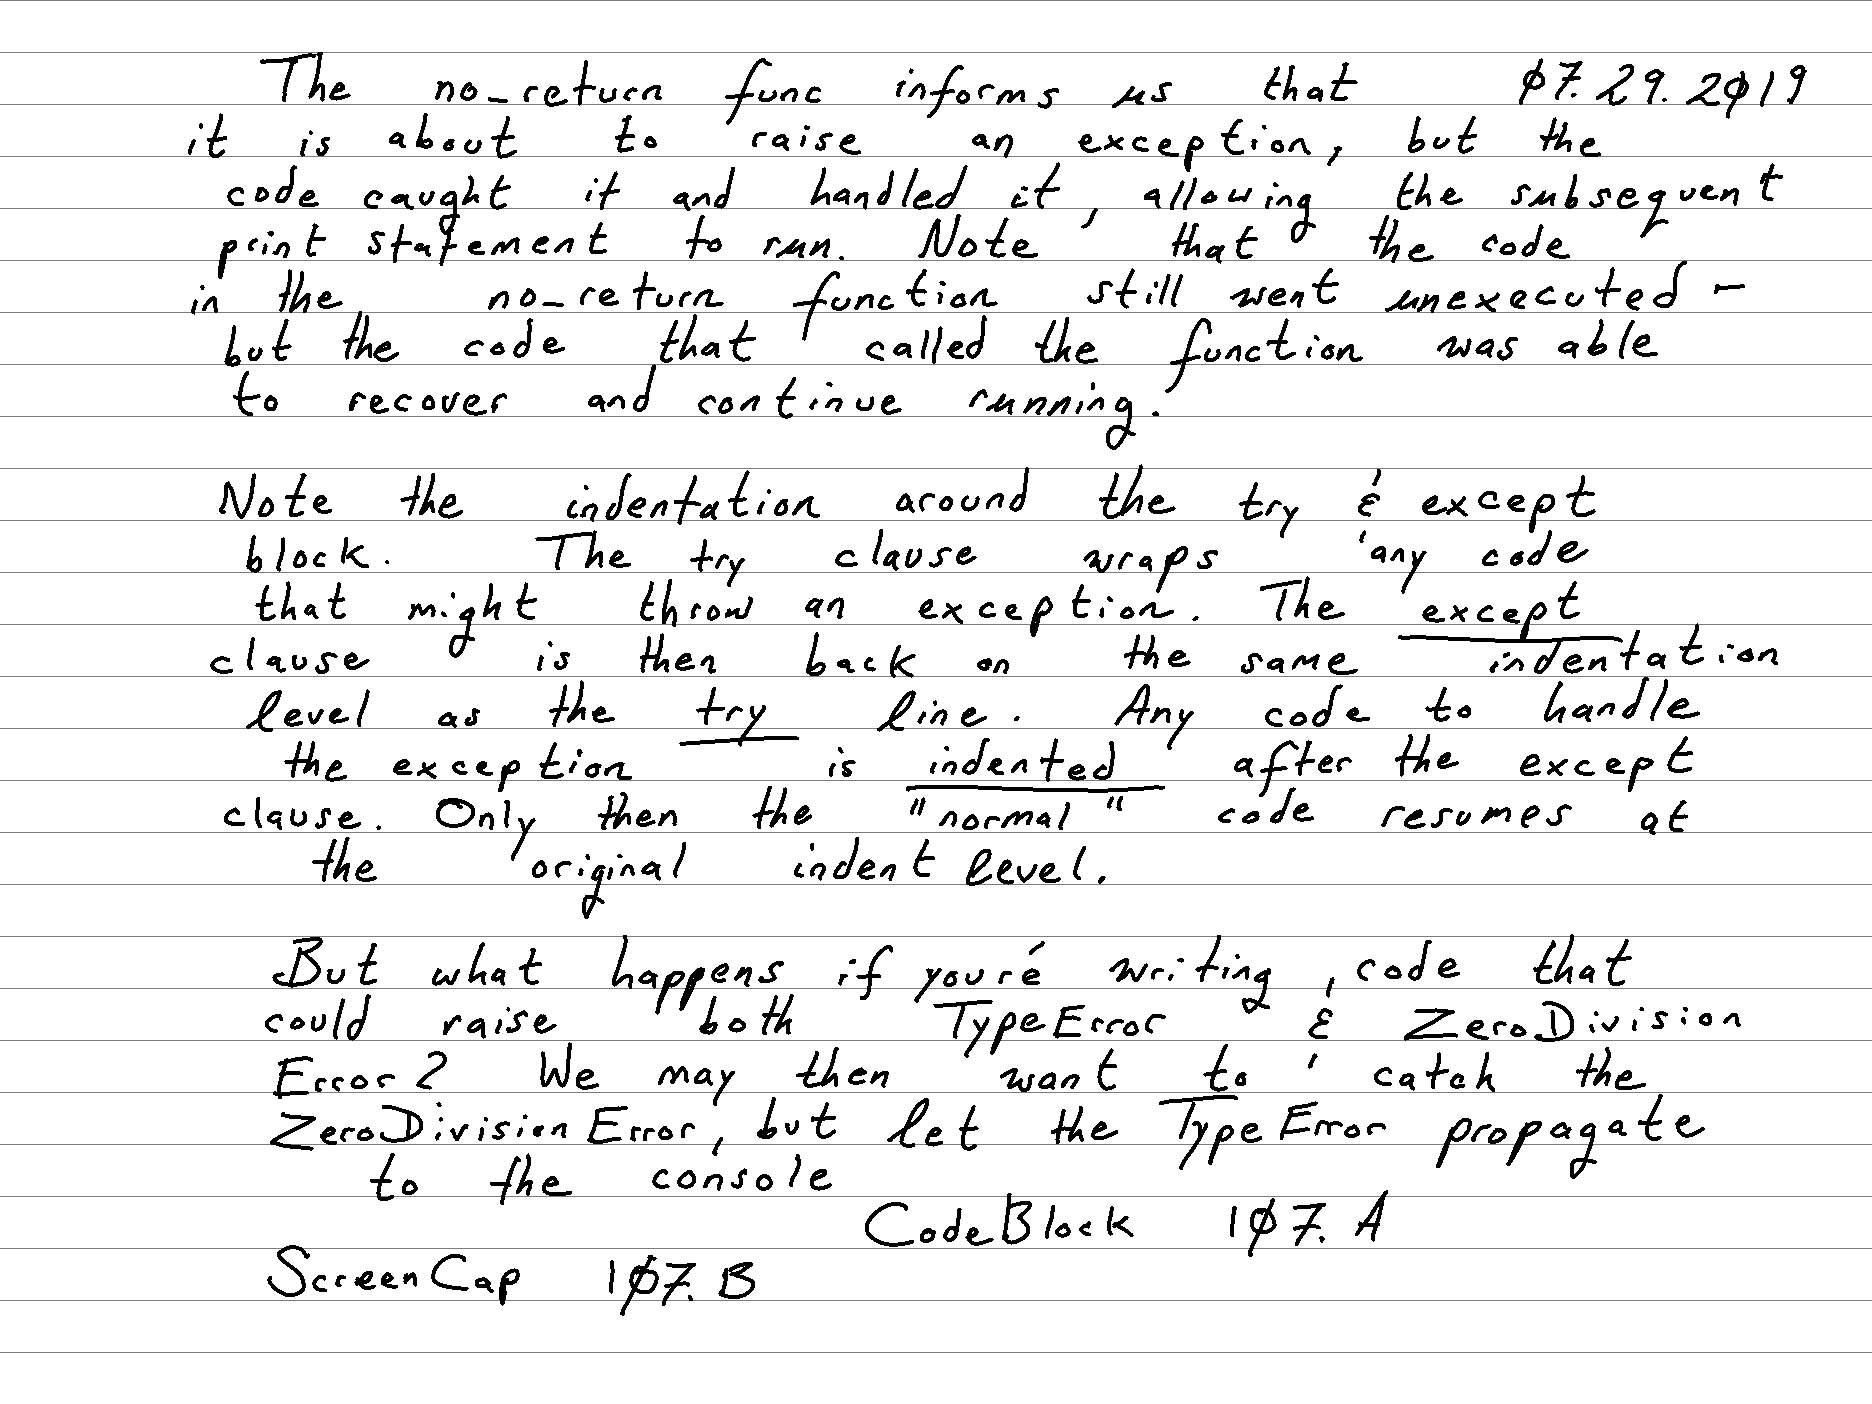 The no_return func informs us that 07.29.2019
it is about to raise an exception, but the
code caught it and handled it, allowing the subsequent
print statement to run. Note that the code
in the no_return function still went unexecuted -
but the code that called the function was able
to recover and continue running.
Note the indentation around the try & except
block. The try clause wraps any code
that might throw an exception. The except
clause is then back on the same indentation
level as the try line. Any code to handle
the exception is indented after the except
clause. Only then the "normal" code resumes at
the original indent level.
But what happens if you're writing code that
could raise both TypeError & ZeroDivision
Error? We may then want to catch the
ZeroDivisionError, but let the TypeError propagate
to the console
CodeBlock 107.A
ScreenCap 107.B